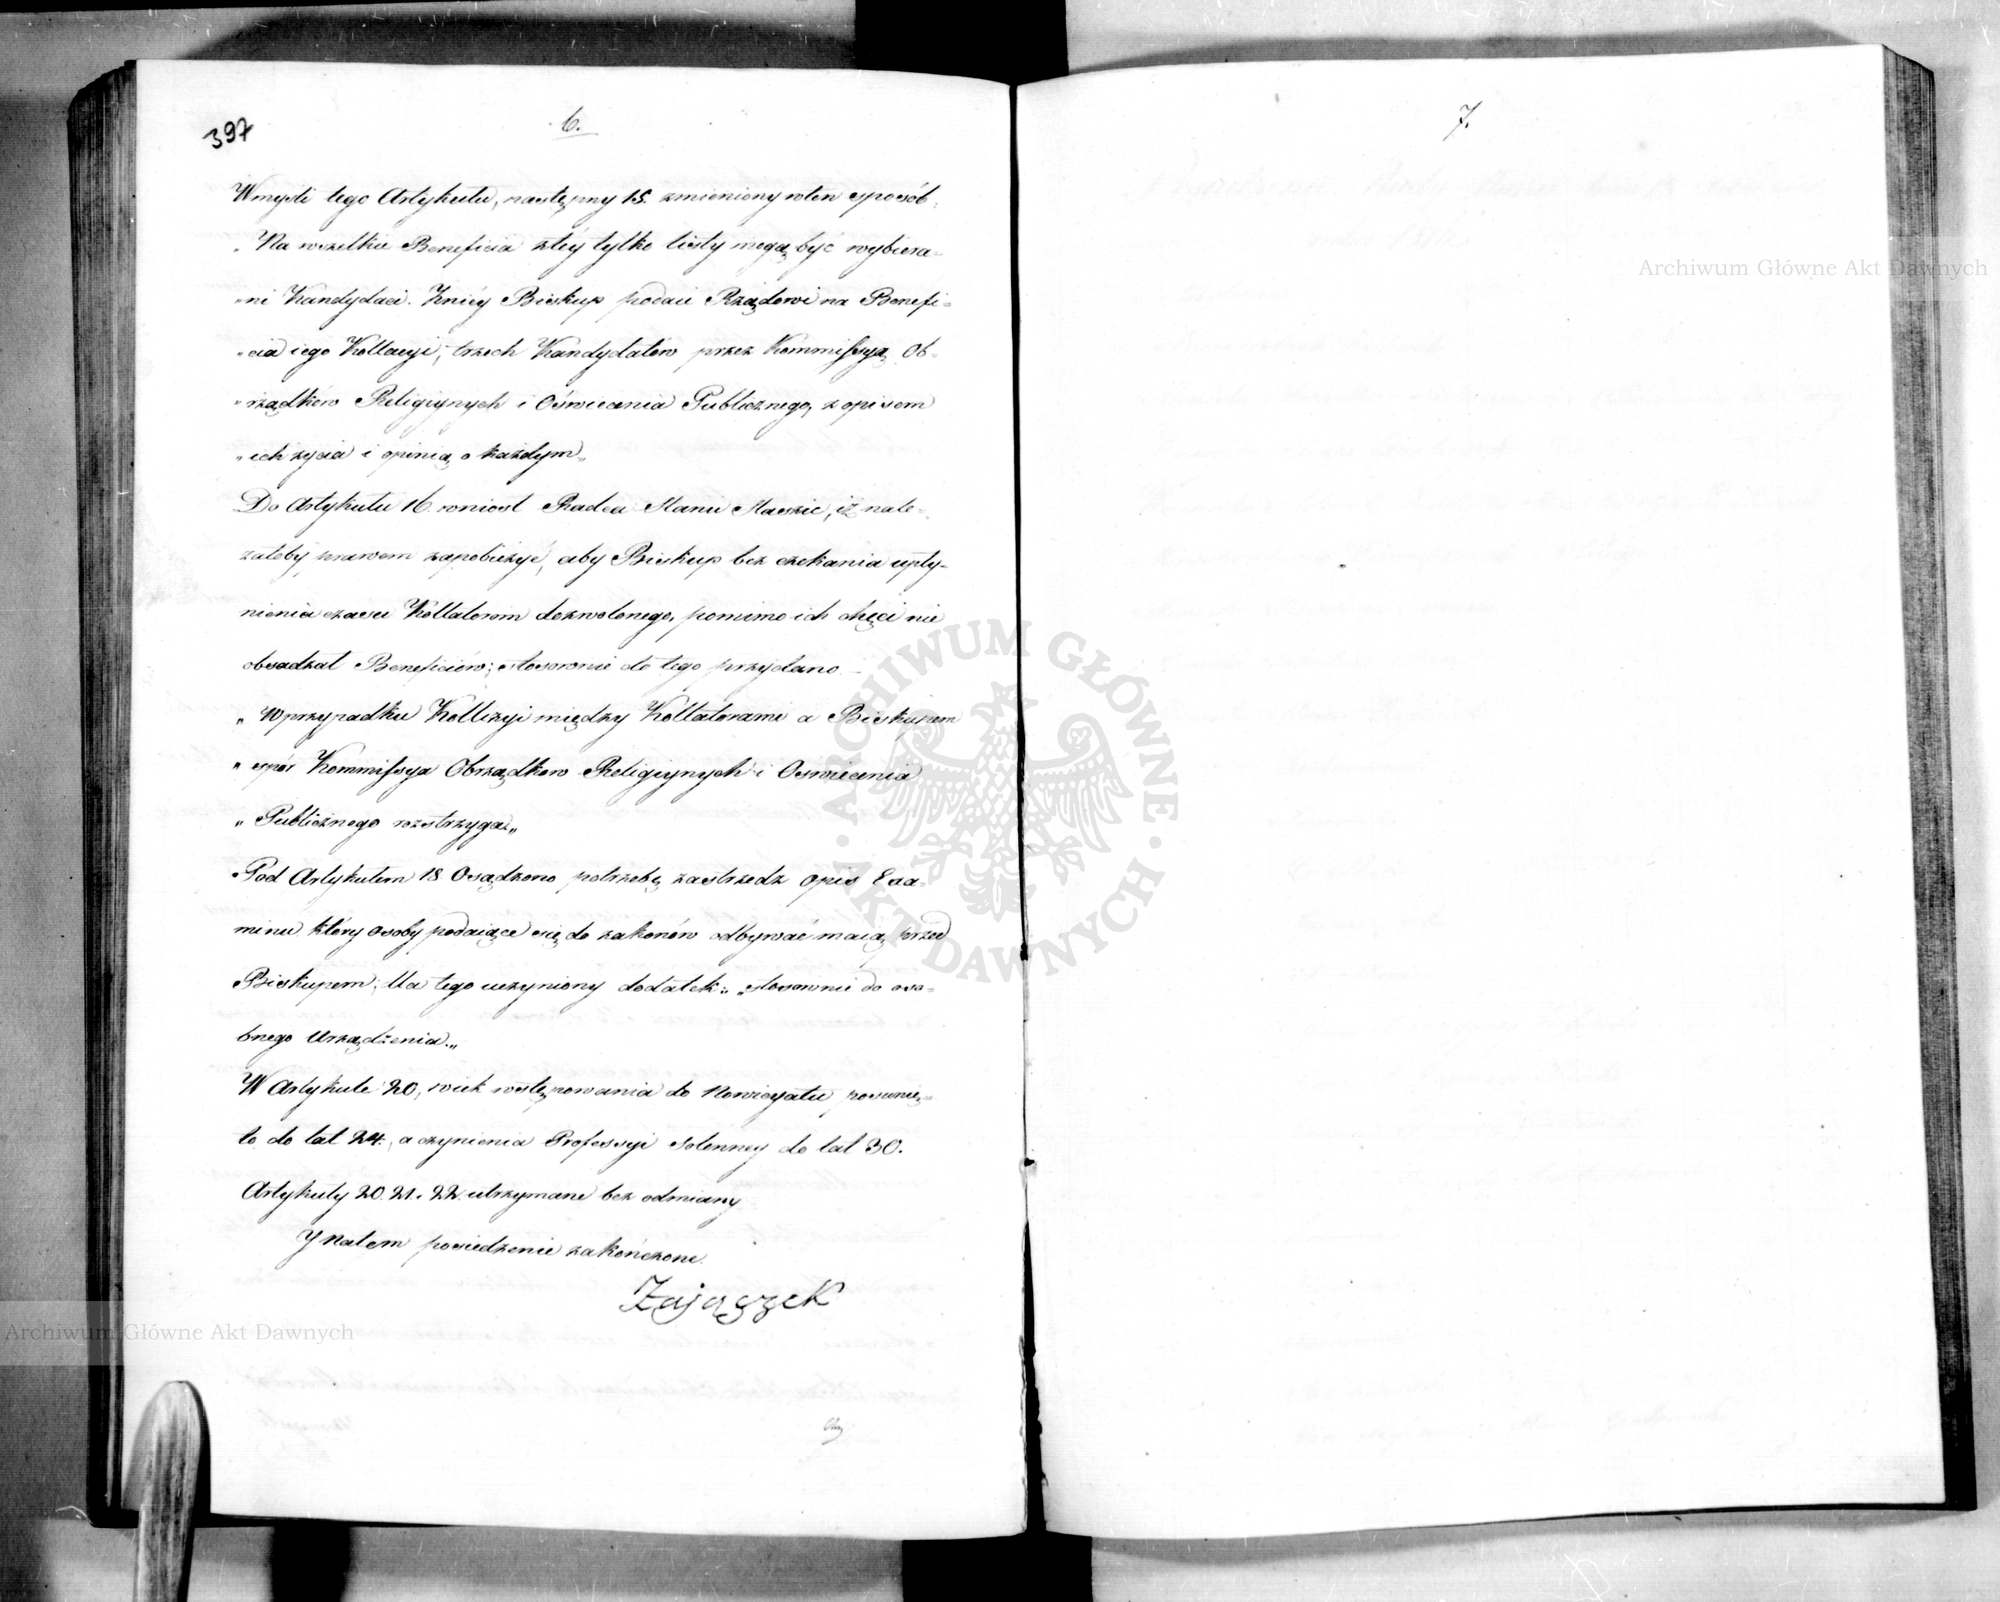 397
6.
W myśl tego Artykułu, następny 15. zmieniony w ten sposób:
„Na wszelkie Beneficia z tey tylko listy mogą być wybiera-
„ni Kandydaci. Z niéy Biskup podaie Rządowi na Benefi-
„cia iego Kollacyi, trzech Kandydatów przez Kommissyą Ob-
„rządków Religiynych i Oświecenia Publicznego, z opisem
„ich życia i opinią o każdym„
Do Artykułu 16. wniosł Radca Stanu Staszic, iż nale-
żałoby prawem zapobieżyć, aby Biskup bez czekania upły-
nienia czasu Kollatorom dozwolonego, pomimo ich chęci nie
obsadzał Beneficiów; stosownie do tego przydano
„W przypadku Kollizyi między Kollatorami a Biskupem
„spór Kommissya Obrządków Religiynych i Oswiecenia
„Publicznego rozstrzyga„
Pod Artykułem 18 Osądzono potrzebę zastrzedz opis Exa-
minu który osoby podaiące się do zakonów odbywać maią przed
Biskupem; dla tego uczyniony dodatek: „stosownie do oso-
bnego Urządzenia.„
W Artykule 20, wiek wstępowania do Nowicyatu posunię-
to do lat 24. a czynienia Professyi Solenney do lat 30.
Artykuły 20. 21. 22. utrzymane bez odmiany
Y na tem posiedzenie zakończone.
Zajączek
7.
Archiwum Główne Akt Dawnych
ARCHIWUM GŁÓWNE AKT DAWNYCH
Archiwum Główne Akt Dawnych